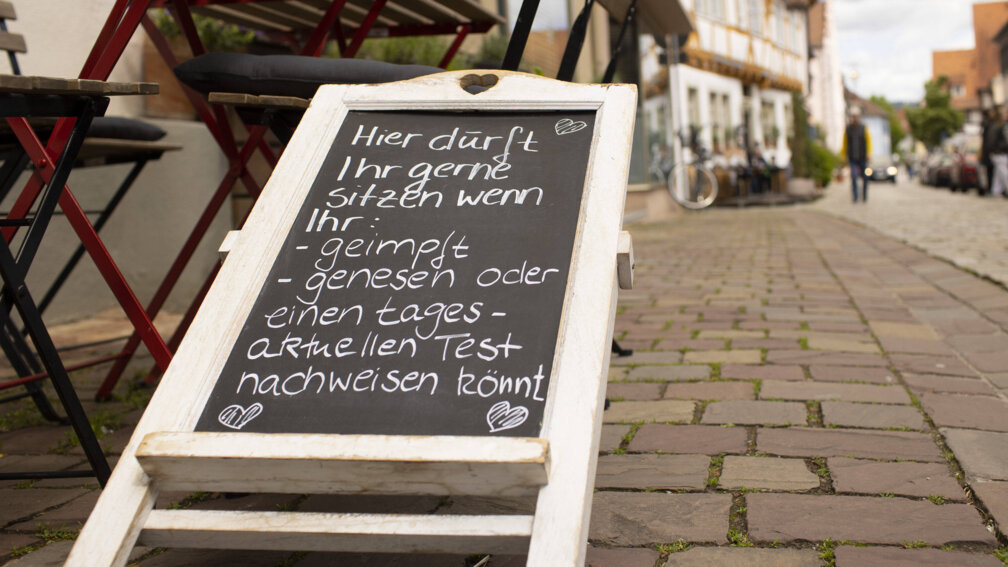 Hier dürft
Ihr gerne
sitzen wenn
Ihr:
- geimpft
- genesen oder
einen tages-
aktuellen Test
nachweisen könnt